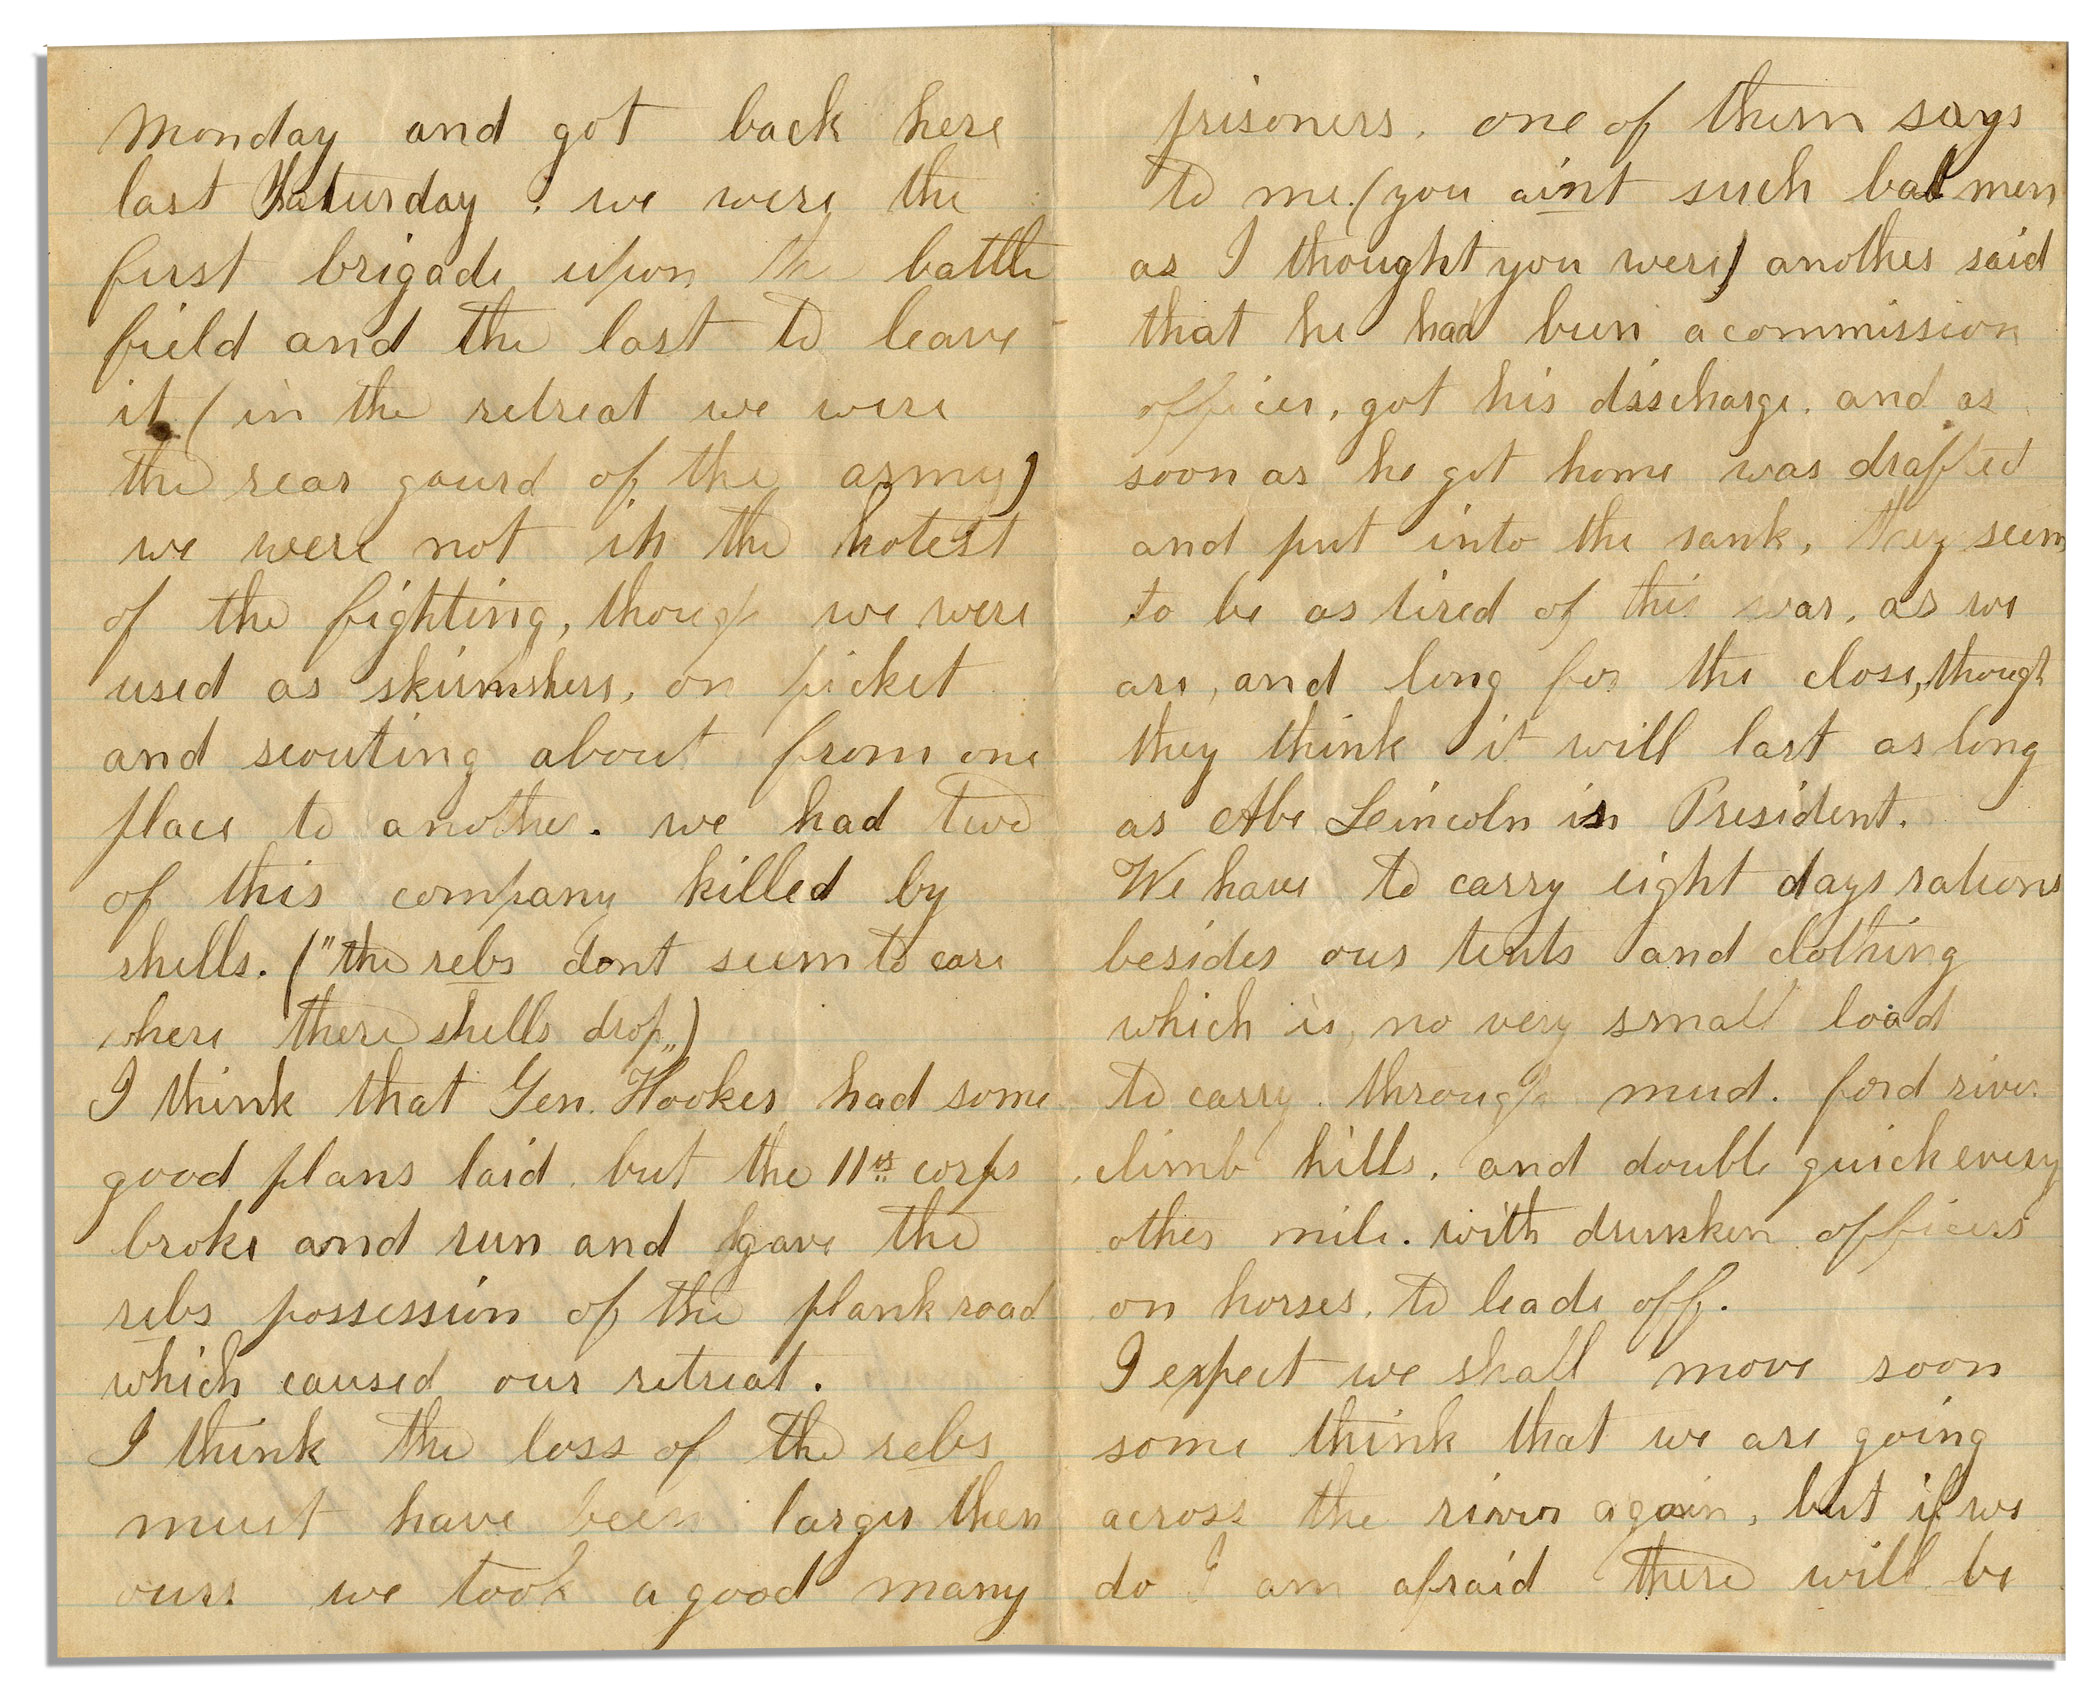 Monday and got back here
last Saturday. we were the
first brigade upon the battle
field and the last to leave
it (in the retreat we were
the rear gaurd of the army)
we were not in the hotest
of the fighting, though we were
used as skirmshers, on picket
and scouting about from one
place to another. we had two
of this company killed by
shells. ("the rebs dont seem to care
where there shells drop")
I think that Gen. Hooker had some
good plans laid. but the 11th corps
broke and run and gave the
rebs possession of the plank road
which caused our retreat.
I think the loss of the rebs
must have been larger then
ours we took a good many
prisoners. one of them says
to me. (you aint such bad men
as I thought you were) another said
that he had been a commission
officer, got his discharge. and as
soon as he got home was drafted
and put into the rank, they seem
to be as tired of this war, as we
are, and long for the close, though
they think it will last as long
as Abe Leincoln is President.
We have to carry eight days rations
besides our tents and clothing
which is, no very small load
to carry through mud. ford river
climb hills. and double quick every
other mile. with drunken officers
on horses. to leade off.
I expect we shall move soon
some think that we are going
across the river again, but if we
do I am afraid there will be